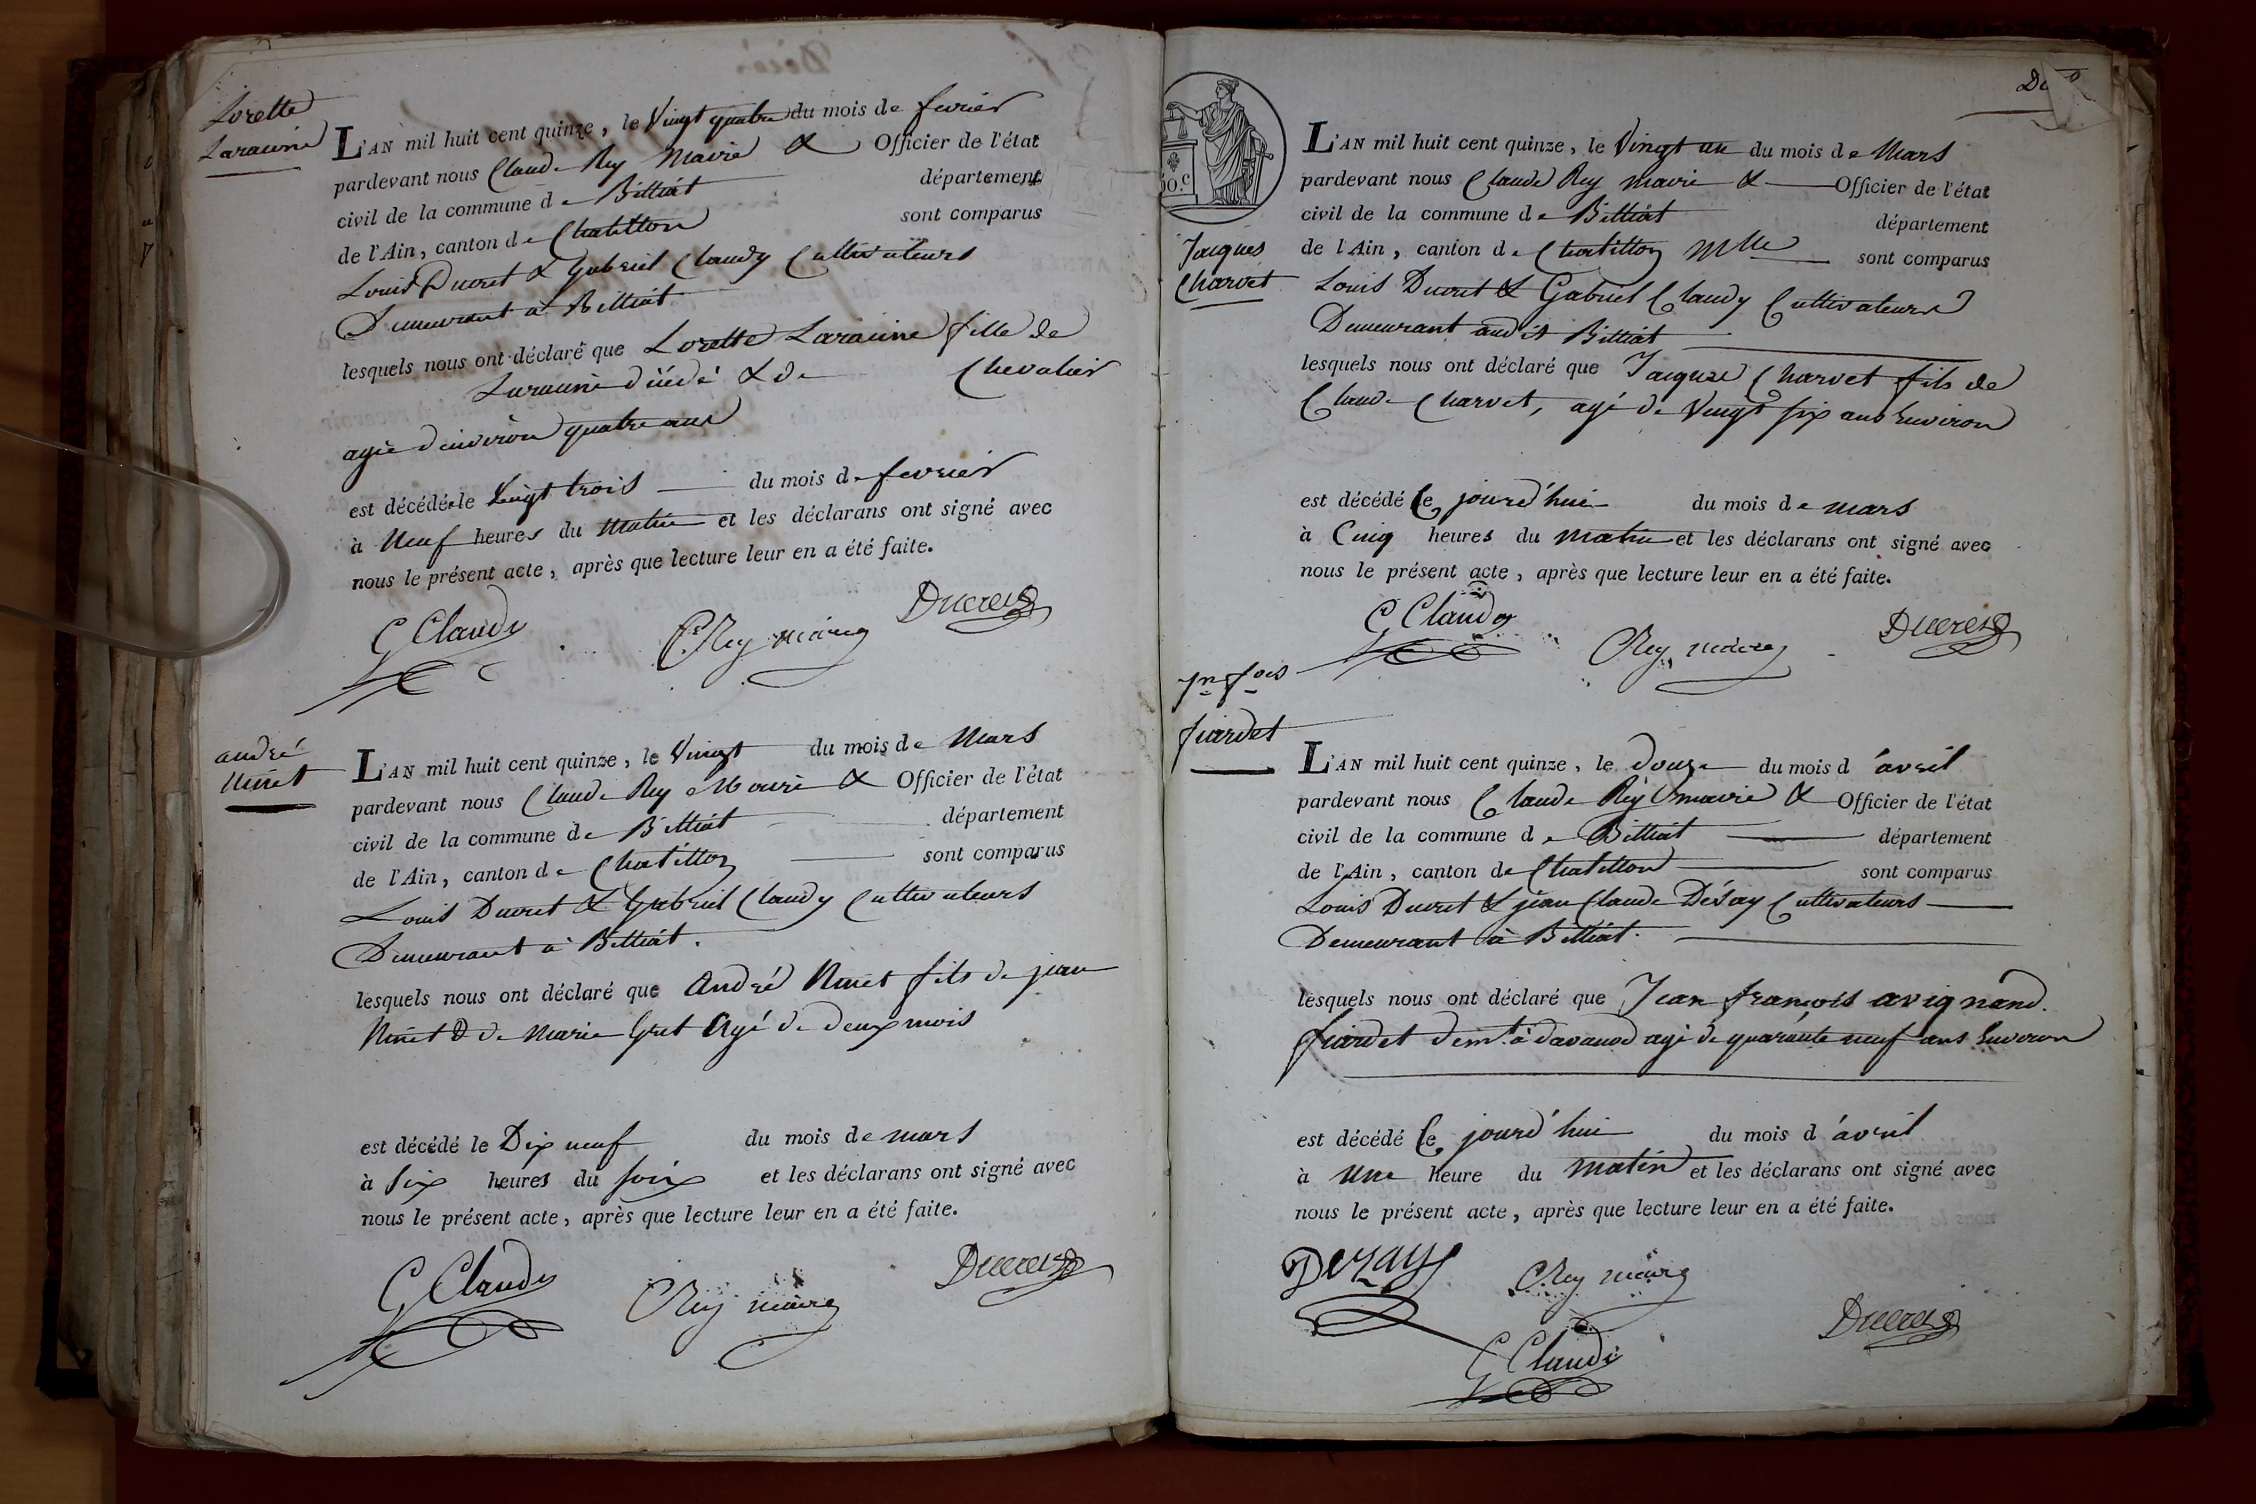 Lorette
Laraciné
L'AN mil huit cent quinze, le Vingt quatre du mois de fevrier
pardevant nous Claude Rey Maire & Officier de l'état
civil de la commune de Billiat département
de l'Ain, canton de Chatillon sont comparus
Louis Ducret & Gabriel Claudy Cultivateurs
Demeurant à Billiat
lesquels nous ont déclaré que Lorette fille de
& de Chevalier
agée d'environ quatre ans
est décédée le Vingt trois du mois de fevrier
à Neuf heures du Matin et les déclarans ont signé avec
nous le présent acte, après que lecture leur en a été faite.
G Claudy C. Rey maire Ducret
andré
Ninet
L'AN mil huit cent quinze, le Vingt du mois de Mars
pardevant nous Claude Rey Maire & Officier de l'état
civil de la commune de Billiat département
de l'Ain, canton de Chatillon sont comparus
Louis Ducret & Gabriel Claudy Cultivateurs
Demeurant à Billiat.
lesquels nous ont déclaré que André Ninet fils de jean
Ninet & de Marie Gret Agé de deux mois
est décédé le Dix neuf du mois de mars
à Six heures du Soir et les déclarans ont signé avec
nous le présent acte, après que lecture leur en a été faite.
G Claudy C Rey maire Ducret
50.c
Jacques
Charvet
L'AN mil huit cent quinze, le Vingt un du mois de Mars
pardevant nous Claude Rey maire & Officier de l'état
civil de la commune de Billiat département
de l'Ain, canton de Chatillon Mlle sont comparus
Louis Ducret & Gabriel Claudy Cultivateurs
Demeurant audit Billiat
lesquels nous ont déclaré que Jacques Charvet fils de
Claude Charvet, agé de Vingt six ans Environ
est décédé Ce jourd'hui du mois de mars
à Cinq heures du Matin et les déclarans ont signé avec
nous le présent acte, après que lecture leur en a été faite.
G Claudy C Rey maire Ducret
Jn fois
fiardet
L'AN mil huit cent quinze, le douze du mois d'avril
pardevant nous Claude Rey maire & Officier de l'état
civil de la commune de Billiat département
de l'Ain, canton de Chatillon sont comparus
Louis Ducret & jean Claude Désay Cultivateurs
Demeurant à Billiat.
lesquels nous ont déclaré que Jean françois avignand
fiardet demt. à davanod agé de quarante neuf ans Environ
est décédé Ce jourd'hui du mois d'avril
à une heure du matin et les déclarans ont signé avec
nous le présent acte, après que lecture leur en a été faite.
Dezay C. Rey maire
G Claudy Ducret